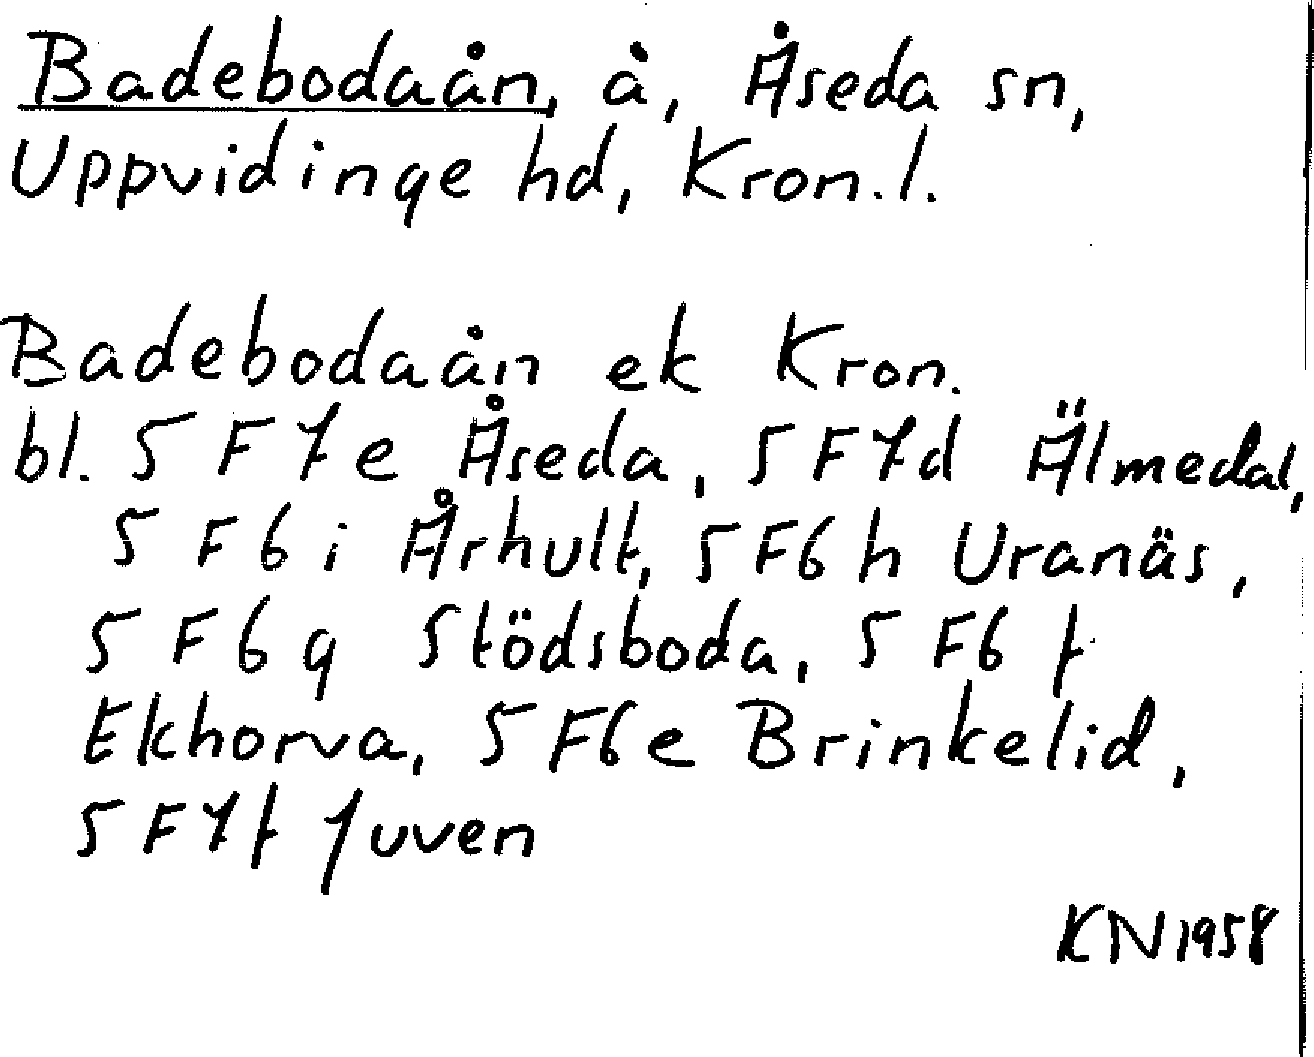 Badebodaån, å, Åseda sn,
Uppvidinge hd, Kron.l.
Badebodaån ek Kron.
bl. 5 F 7 e Åseda, 5 F 7 d Älmedal,
5 F 6 i Århult, 5 F 6 h Uranäs,
5 F 6 g Stödsboda, 5 F 6 f
Ekhorva, 5 F 6 e Brinkelid,
5 F 7 f Juven
KN 1958